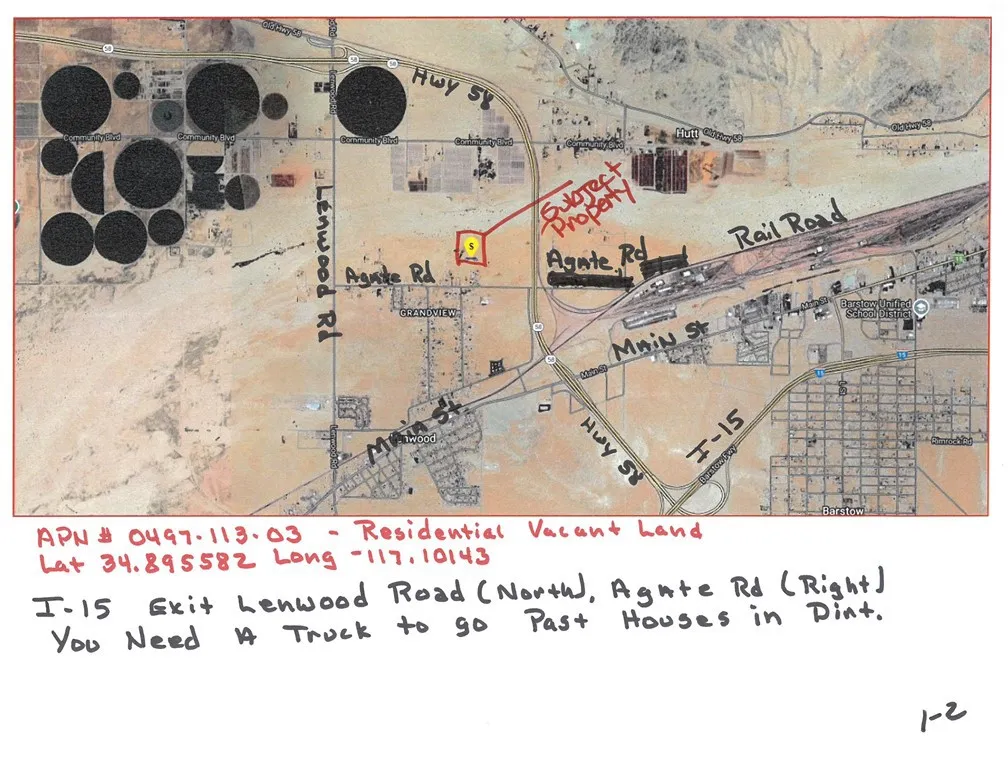 Old Hwy 58
58
58
58
Hwy 58
Lenwood Rd
Community Blvd
Community Blvd
Community Blvd
Community Blvd
Community Blvd
Hutt
Old Hwy 58
Old Hwy 58
Subject
Property
S
Lenwood Rd
Rail Road
Agate Rd
Agate Rd
GRANDVIEW
Main St
Barstow Unified
School District
58
Main St
58
Main St
15
15
L St
Main St
Lenwood
Lenwood Rd
Hwy 58
I-15
Barstow Fwy
Rimrock Rd
Barstow
APN # 0497-113-03 - Residential Vacant Land
Lat 34.895582 Long -117.10143
I-15 Exit Lenwood Road (North), Agate Rd (Right)
You Need A Truck to go Past Houses in Dirt.
1-2